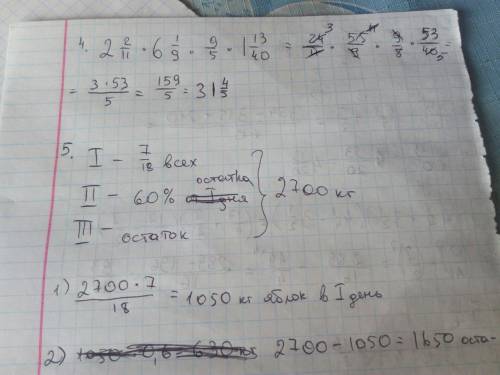 4. 2 2/11 · 6 1/9 · 9/5 · 1 13/40 = 24/11 ³ · 55/9 ¹¹ · 9/8 · 53/40 ₅ =
= 3·53/5 = 159/5 = 31 4/5
5. I – 7/18 всех
II – 60% остатка
III – остаток
2700 кг
1) 2700·7/18 = 1050 кг яблок в I день
2) 2700 – 1050 = 1650 оста-